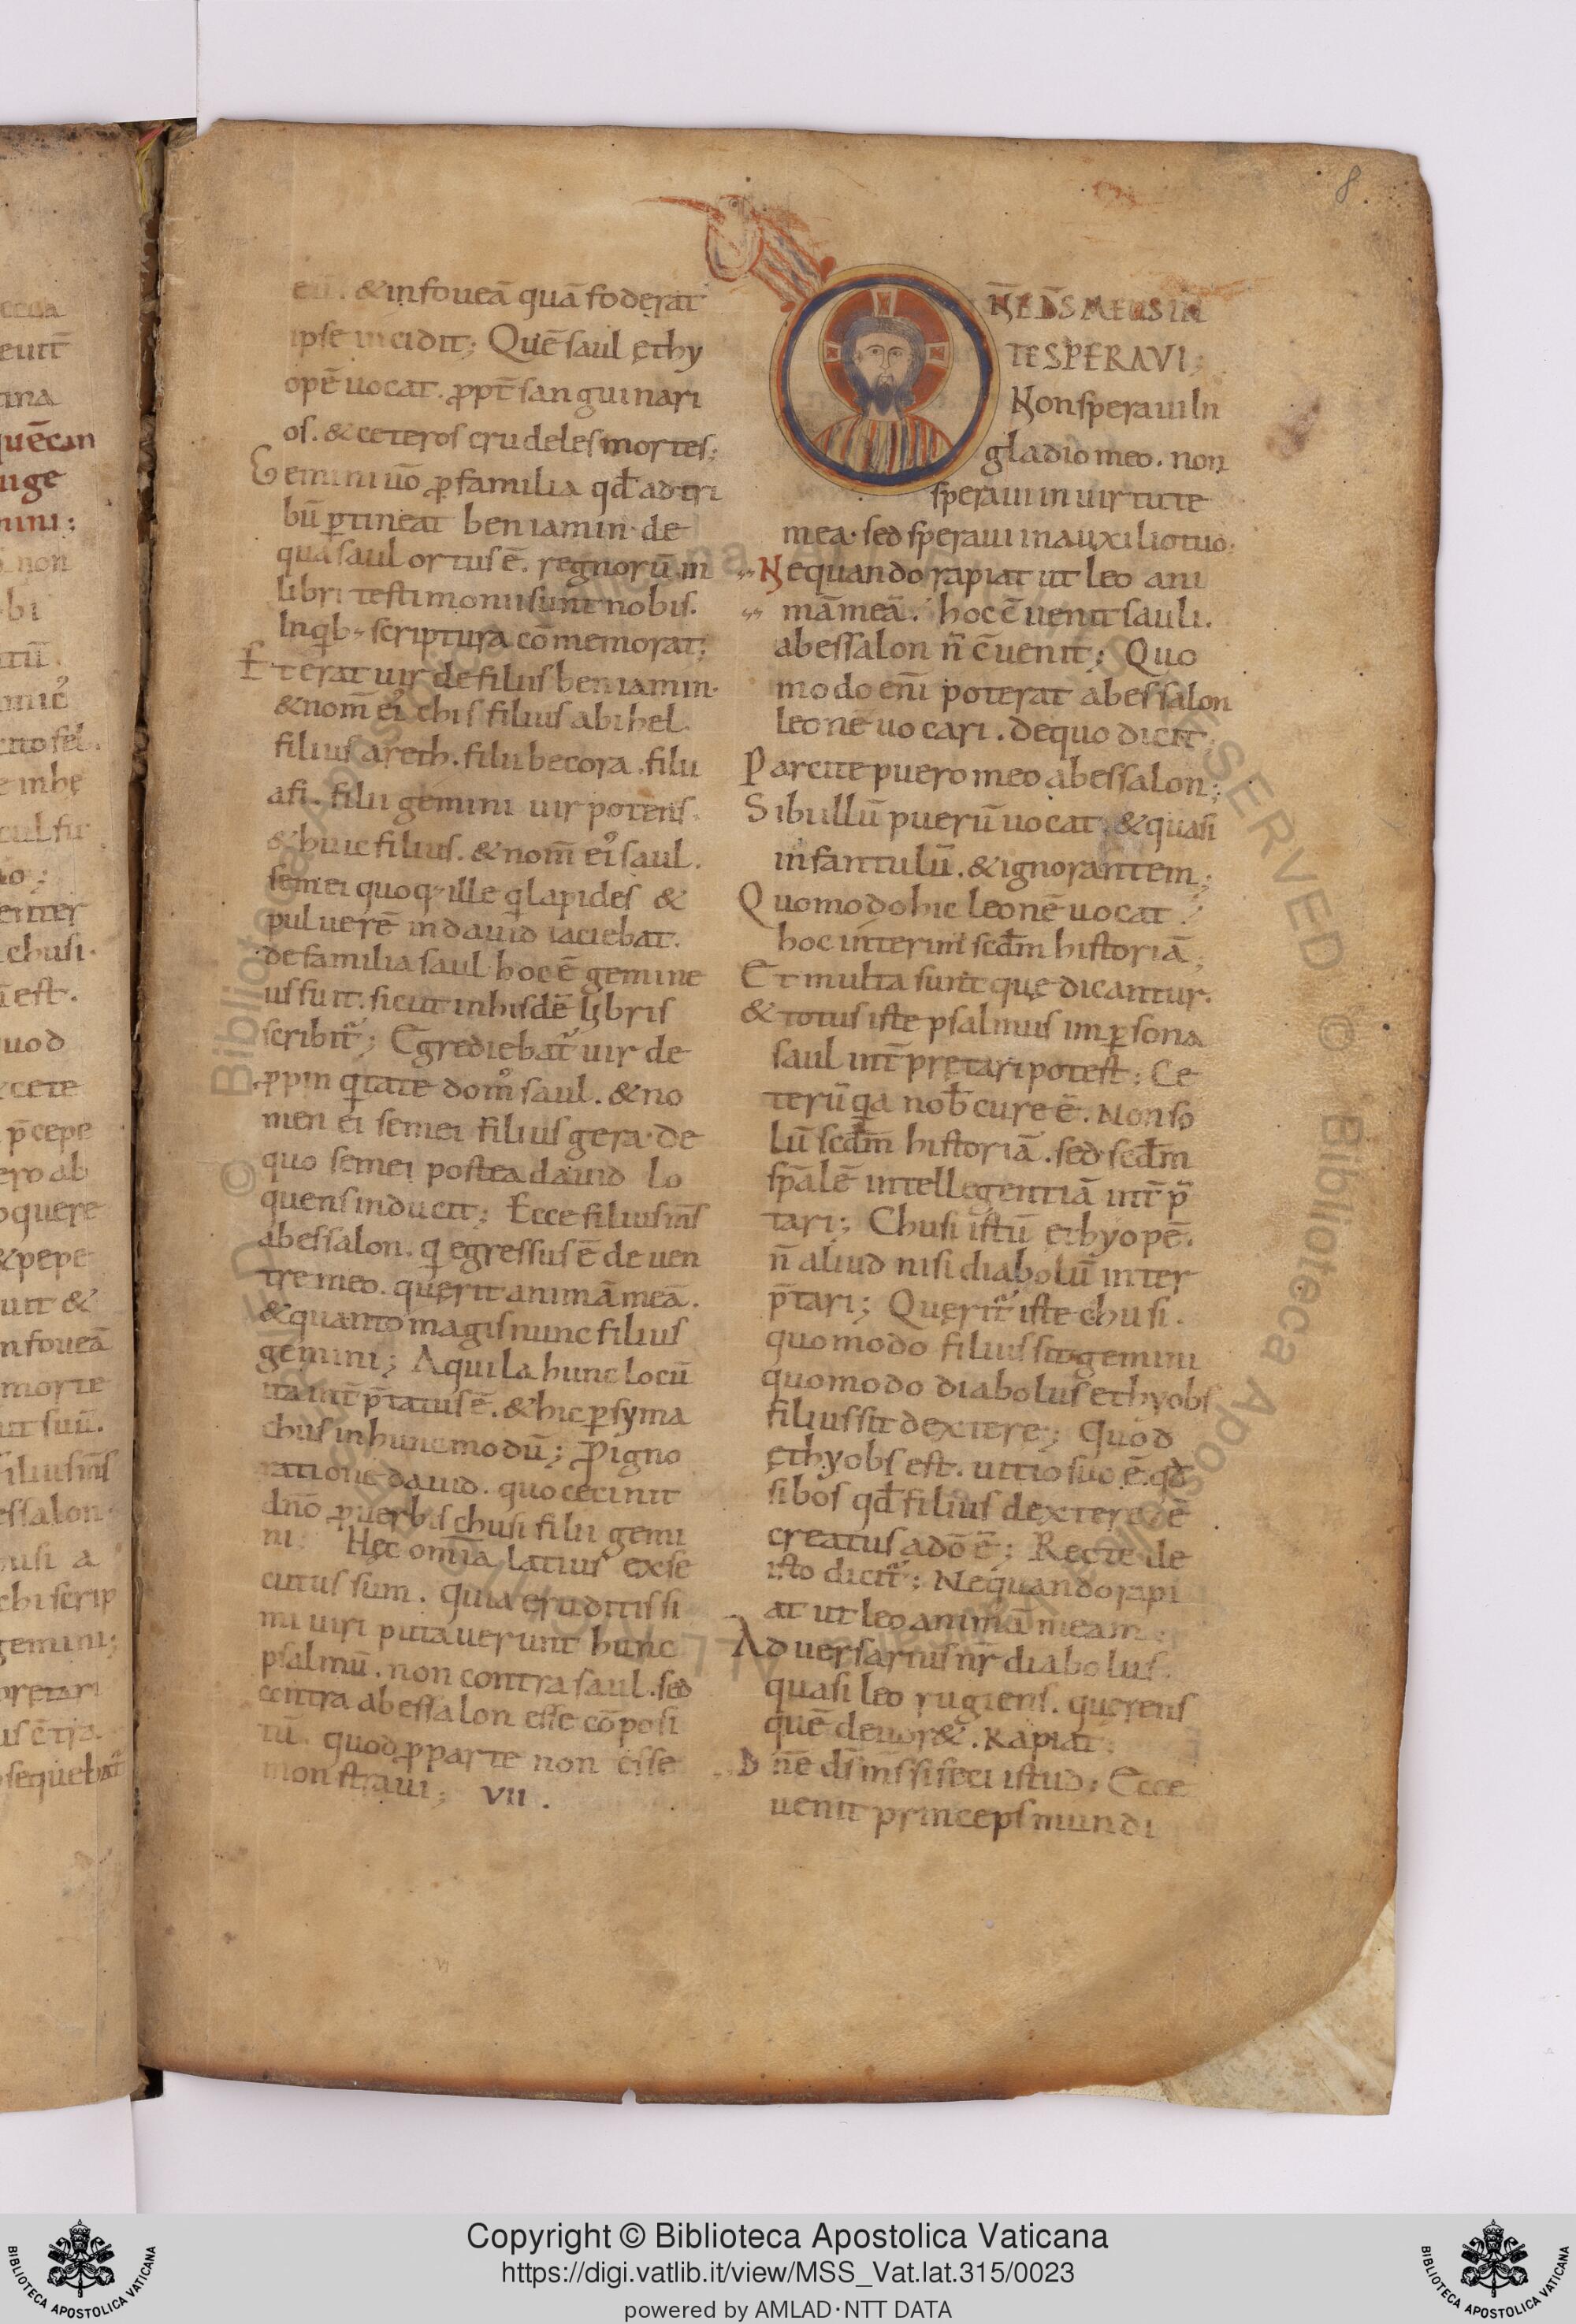 8.
eū. & in foueā quā foderat
ipse incidit; Quē saul ęthy
opē uocat. ꝓpt̄ sanguinari
os. & ceteros crudeles mortes;
Gemini ūo ꝓ familia qđ ad tri
bū ꝑtineat beniamin. de
qua saul ortus ē. regnorū in
libri testimonii sunt nobis.
In qib; scriptura cōmemorat;
Et erat uir de filiis beniamin.
& nom̄ ei᾿ chis filius abihel.
filius areth. filii becora. filii
afi. filii gemini uir potens.
& huic filius. & nom̄ ei᾿ saul.
semei quoq; ille qi lapides &
puluerē in dauid iaciebat.
de familia saul hoc ē gemine
us fuit. sicut in hisdē libris
scribit᷑; Egrediebat᷑ uir de
ꝓpinqitate dom᾿ saul. & no
men ei semei filius gera. de
quo semei postea dauid lo
quens inducit; Ecce filius m̄s
abessalon. qi egressus ē de uen
tre meo. querit animā meā.
& quanto magis nunc filius
gemini; Aquila hunc locū
ita int̄p̄tatus ē. & hic ꝑ syma
chus in hunc modū; Ꝓ igno
ratione dauid. quo cecinit
dn̄o ꝓ uerbis chusi filii gemi
ni; Hęc om̄ia latius exse
cutus sum. quia eruditissi
mi uiri putauerunt hunc
psalmū. non contra saul. sed
contra abessalon esse cōposi
tū. quod ꝓ parte non esse
monstraui; VII.
N̄E D̄S MEUS IN
TE SPERAVI;
Non speraui In
gladio meo. non
speraui in uirtute
mea. sed speraui in auxilio tuo.
Nequando rapiat ut leo ani
mā meā. hoc c̄uenit sauli.
abessalon n̄ c̄uenit; Quo
modo eni poterat abessalon
leonē uocari. de quo dicit.
Parcite puero meo abessalon;
Sibullū puerū uocat. & quasi
infantulū. & ignorantem;
Quomodo hic leonē uocat.
hoc interim scđm historiā;
Et multa sunt quę dicantur.
& totus iste psalmus in ꝑsona
saul int̄pretari potest; Ce
terū qia nob̄ cure ē. Non so
lū scđm historiā. sed scđm
sp̄alē intellegentiā int̄p̄
tari; Chusi istū ethyopē.
n̄ aliud nisi diabolū inter
p̄tari; Querit᷑ iste chusi.
quomodo filius sit gemini
quomodo diabolus ethyobs
filius sit dextere; Quod
ęthyobs est. uitio suo ē. qđ
si bos qđ filius dextere ē
creatus a dō ē; Recte de
isto dicit᷑; Nequando rapi
at ut leo animā meam;
Aduersarius nr̄ diabolus.
quasi leo rugiens. querens
quē deuor&. Rapiat;
Dn̄e ds̄ m̄s si feci istud; Ecce
uenit princeps mundi
Copyright © Biblioteca Apostolica Vaticana
https://digi.vatlib.it/view/MSS_Vat.lat.315/0023
powered by AMLAD·NTT DATA
BIBLIOTECA APOSTOLICA VATICANA
BIBLIOTECA APOSTOLICA VATICANA